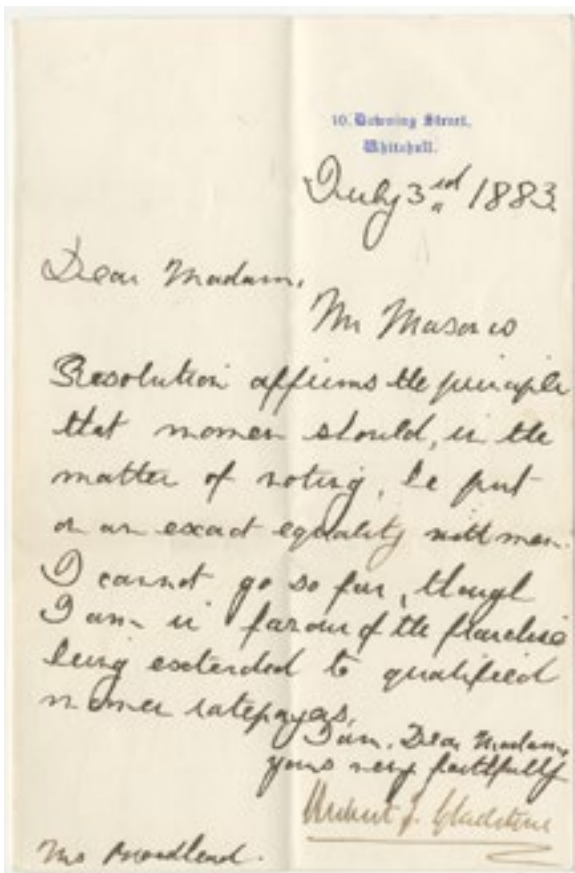 10, Downing Street,
Whitehall.
July 3rd 1883.
Dear Madam,
Mr Mason's
Resolution affirms the principle
that women should, in the
matter of voting, be put
on an exact equality with men.
I cannot go so far, though
I am in favour of the franchise
being extended to qualified
women ratepayers.
I am, Dear Madam,
yours very faithfully
Herbert J. Gladstone